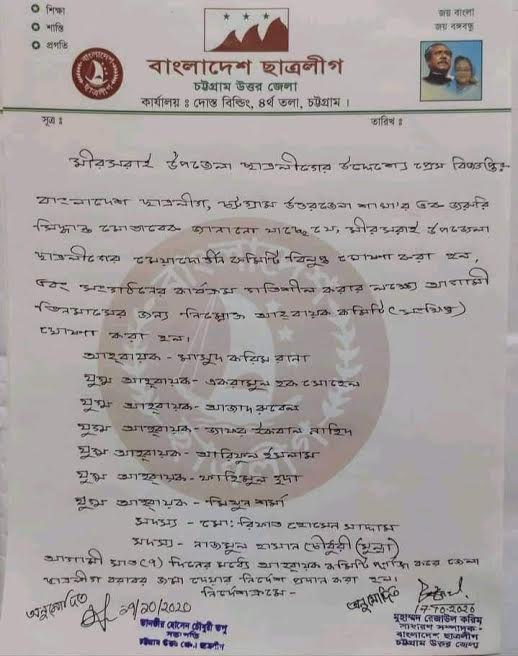 শিক্ষা
শান্তি
প্রগতি
জয় বাংলা
জয় বঙ্গবন্ধু
বাংলাদেশ ছাত্রলীগ
বাংলাদেশ ছাত্রলীগ
চট্টগ্রাম উত্তর জেলা
কার্যালয় ঃ দোস্ত বিল্ডিং, ৪র্থ তলা, চট্টগ্রাম ।
সূত্র ঃ
তারিখ ঃ
মীরসরাই উপজেলা ছাত্রলীগের উদ্দেশ্যে প্রেস বিজ্ঞপ্তি:-
বাংলাদেশ ছাত্রলীগ, চট্টগ্রাম উত্তরজেলা শাখা'র এক জরুরি
সিদ্ধান্ত মোতাবেক জানানো যাচ্ছে যে, মীরসরাই উপজেলা
ছাত্রলীগের মেয়াদোত্তীর্ন কমিটি বিলুপ্ত ঘোষণা করা হল,
এবং সংগঠনের কার্যক্রম গতিশীল করার লক্ষ্যে আগামী
তিনমাসের জন্য নিম্নোক্ত আহবায়ক কমিটি (সংক্ষিপ্ত)
ঘোষণা করা হল।
আহবায়ক - মাসুদ করিম রানা
যুগ্ম আহবায়ক - একরামুল হক সোহেল
যুগ্ম আহবায়ক - আজাদ রুবেল
যুগ্ম আহবায়ক - জাফর ইকবাল নাহিদ
যুগ্ম আহবায়ক - আরিফুল ইসলাম
যুগ্ম আহবায়ক - ফাহিমুল হুদা
যুগ্ম আহবায়ক - মিথুন শর্মা
সদস্য - মো: রিফাত হোসেন সাদ্দাম
সদস্য - নাজমুল হাসান চৌধুরী (মুন্না)
আগামী সাত (৭) দিনের মধ্যে আহবায়ক কমিটি পূর্ণাঙ্গ করে জেলা
ছাত্রলীগ বরাবর জমা দেয়ার নির্দেশ প্রদান করা হল।
নির্দেশক্রমে -
অনুমোদিত
১৭/১০/২০২০
তানভীর হোসেন চৌধুরী তপু
সভাপতি
চট্টগ্রাম উঃ জেঃ ছাত্রলীগ
অনুমোদিত
17-10-2020
মুহাম্মদ রেজাউল করিম
সাধারণ সম্পাদক
বাংলাদেশ ছাত্রলীগ
চট্টগ্রাম উত্তর জেলা
বাংলাদেশ
ছাত্রলীগ